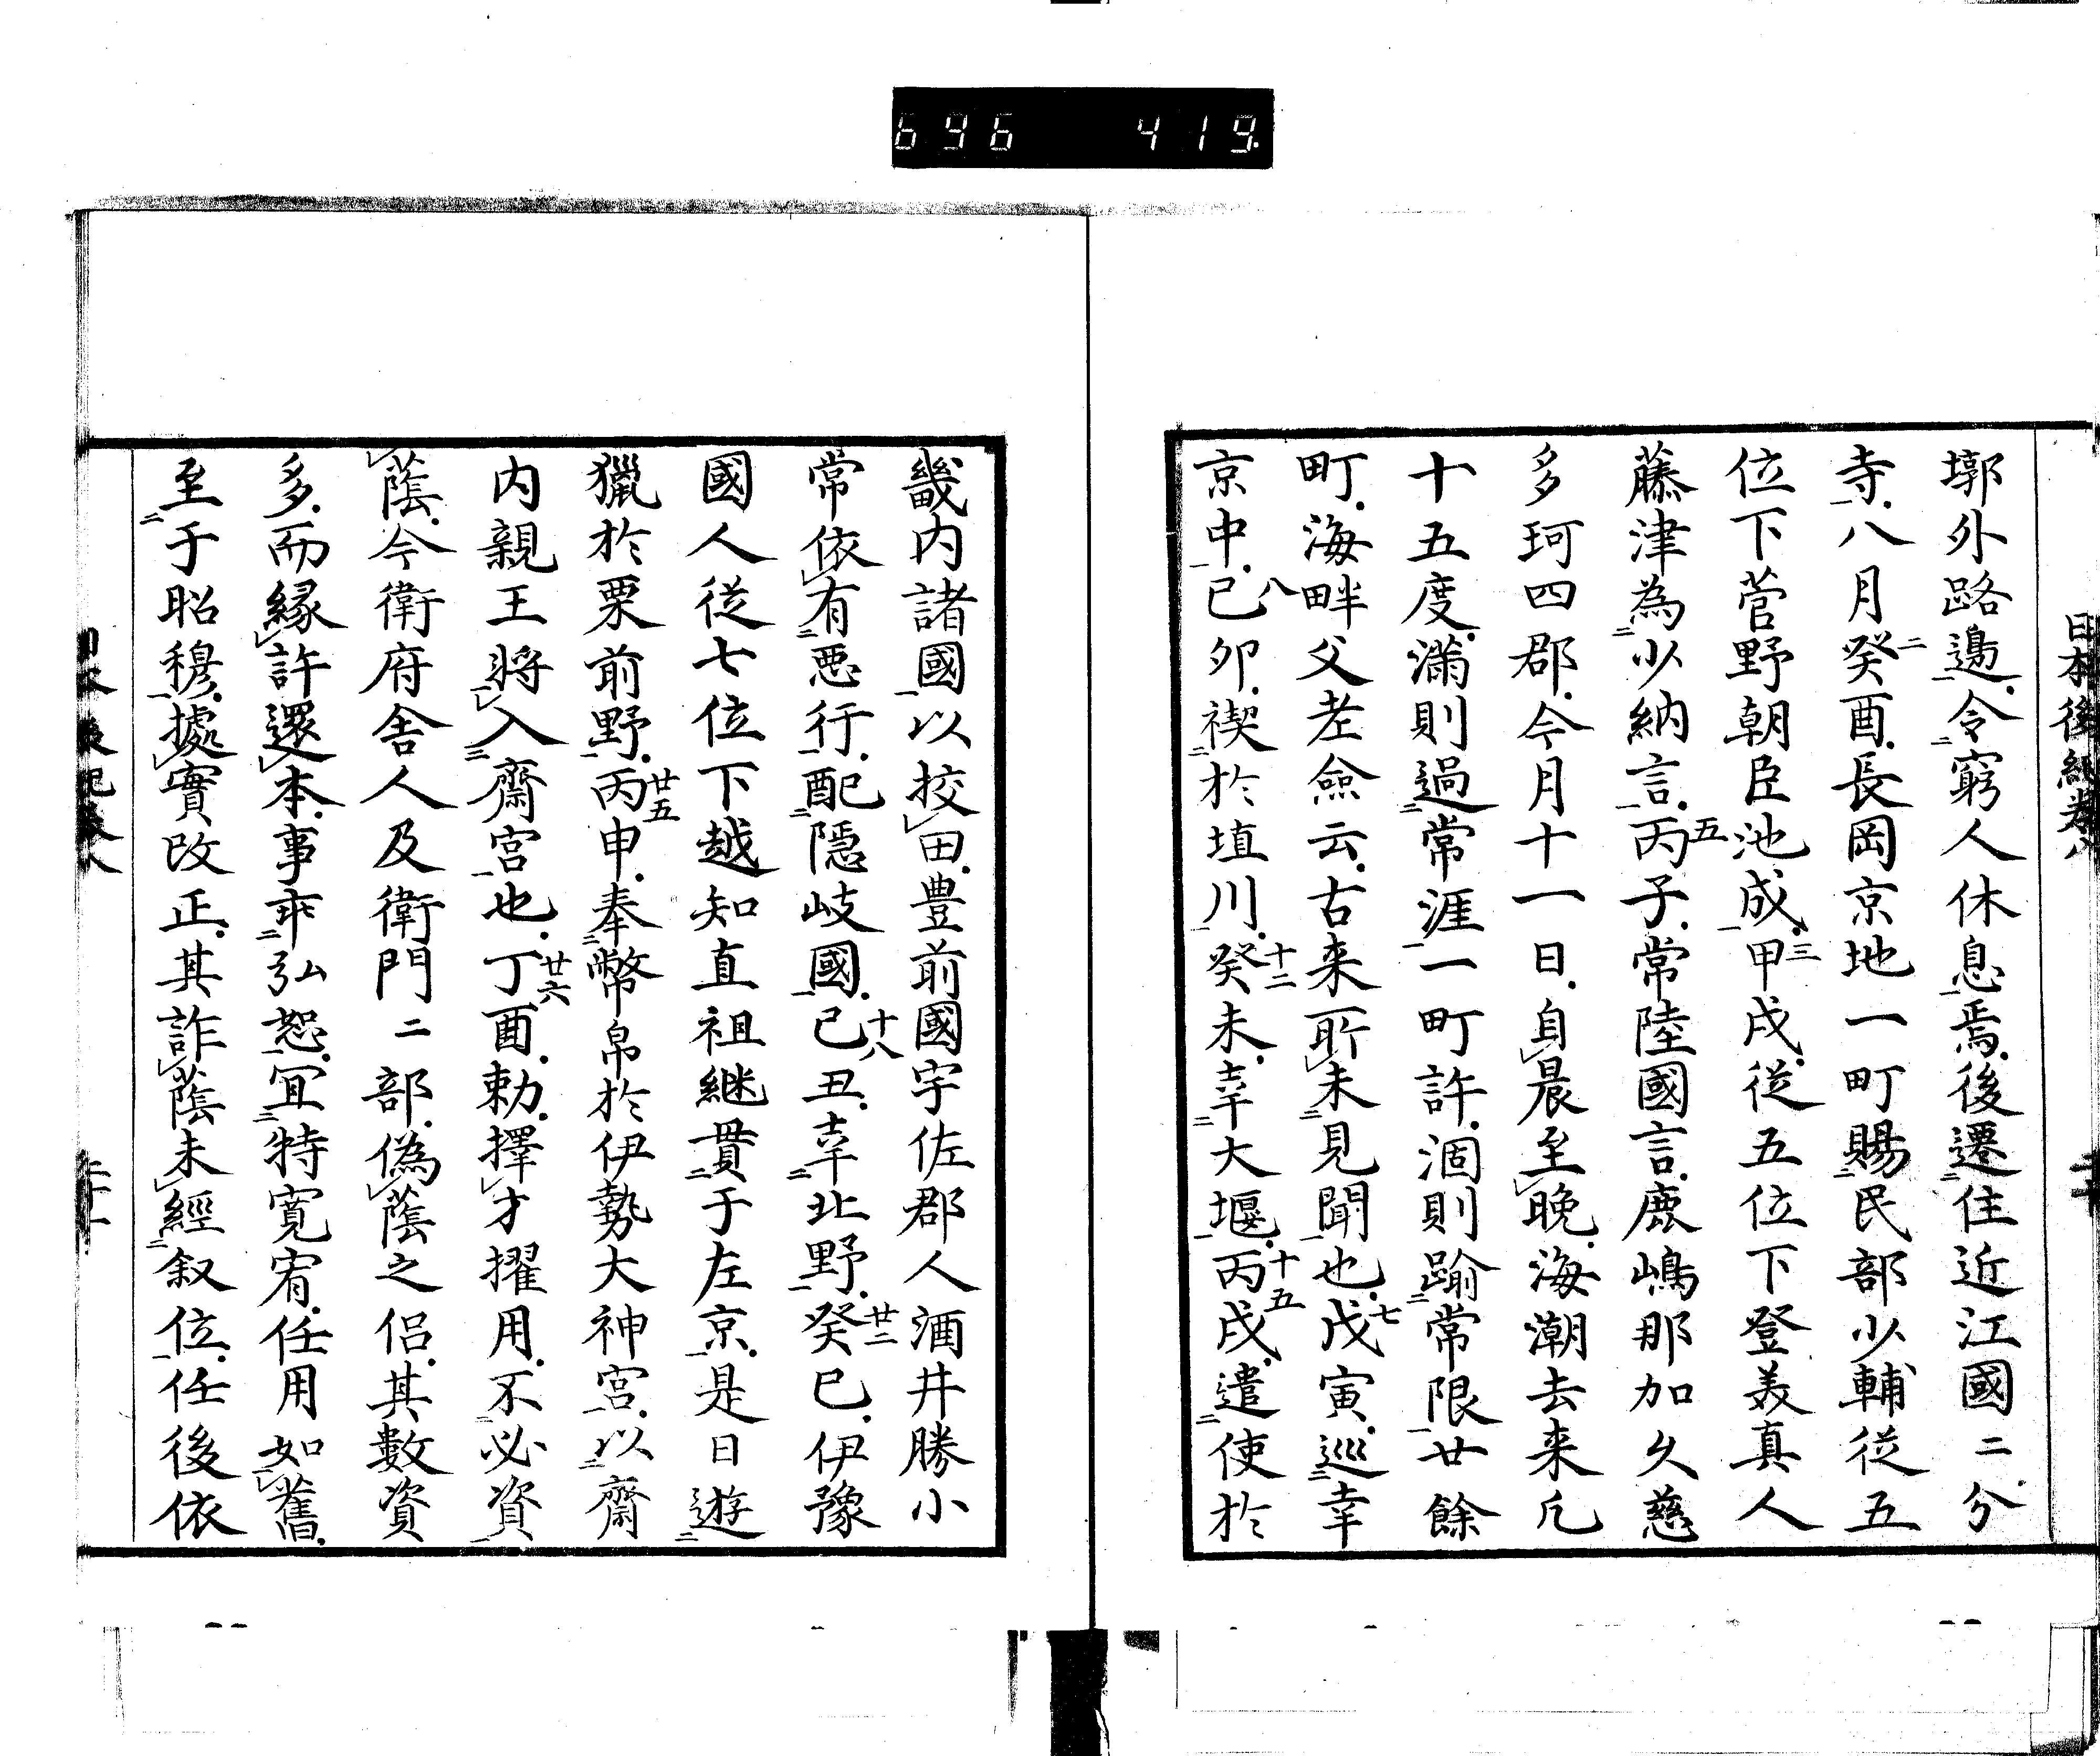 696 419
日本後紀卷八
墎外路邊令窮人休息焉後遷住近江國二分
寺八月癸酉長岡京地一町賜民部少輔從五
位下菅野朝臣池成甲戌從五位下登美真人
藤津為少納言丙子常陸國言鹿嶋那加久慈
多珂四郡今月十一日自晨至晚海潮去来凢
十五度滿則過常涯一町許涸則踰常限廿餘
町海畔父老僉云古来所未見聞也戊寅巡幸
京中已卯禊於埴川癸未幸大堰丙戌遣使於
畿内諸國以挍田豊前國宇佐郡人酒井勝小
常依有悪行配隱岐國已丑幸北野癸巳伊豫
國人從七位下越知直祖継貫于左京是日遊
獵於栗前野丙申奉幣帛於伊勢大神宮以齋
内親王將入齋宮也丁酉勅擇才擢用不必資
蔭今衛府舎人及衛門二部偽蔭之侶其數資
多而縁許還本事乖弘恕冝特寛宥任用如舊
至于昭穆據實改正其詐蔭未經叙位任後依